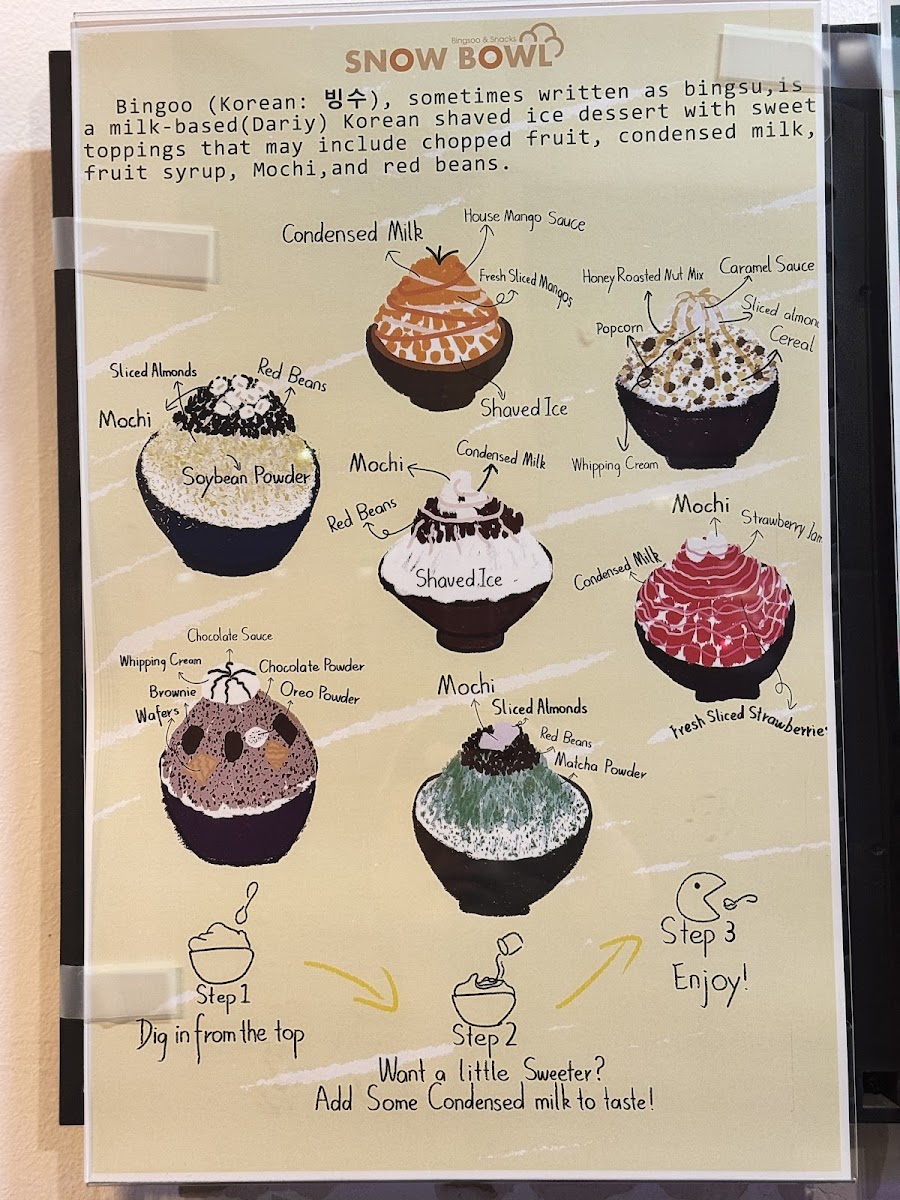 Bingsoo & Snacks
SNOW BOWL
Bingoo (Korean: 빙수), sometimes written as bingsu,is
a milk-based(Dariy) Korean shaved ice dessert with sweet
toppings that may include chopped fruit, condensed milk,
fruit syrup, Mochi,and red beans.
Condensed Milk
House Mango Sauce
Fresh Sliced Mangos
Shaved Ice
Honey Roasted Nut Mix
Caramel Sauce
Sliced almond
Popcorn
Cereal
Whipping Cream
Sliced Almonds
Red Beans
Mochi
Soybean Powder
Mochi
Condensed Milk
Red Beans
Shaved Ice
Mochi
Strawberry Jam
Condensed Milk
Fresh Sliced Strawberries
Chocolate Sauce
Whipping Cream
Chocolate Powder
Brownie
Oreo Powder
Wafers
Mochi
Sliced Almonds
Red Beans
Matcha Powder
Step 1
Dig in from the top
Step 2
Want a little Sweeter?
Add Some Condensed milk to taste!
Step 3
Enjoy!